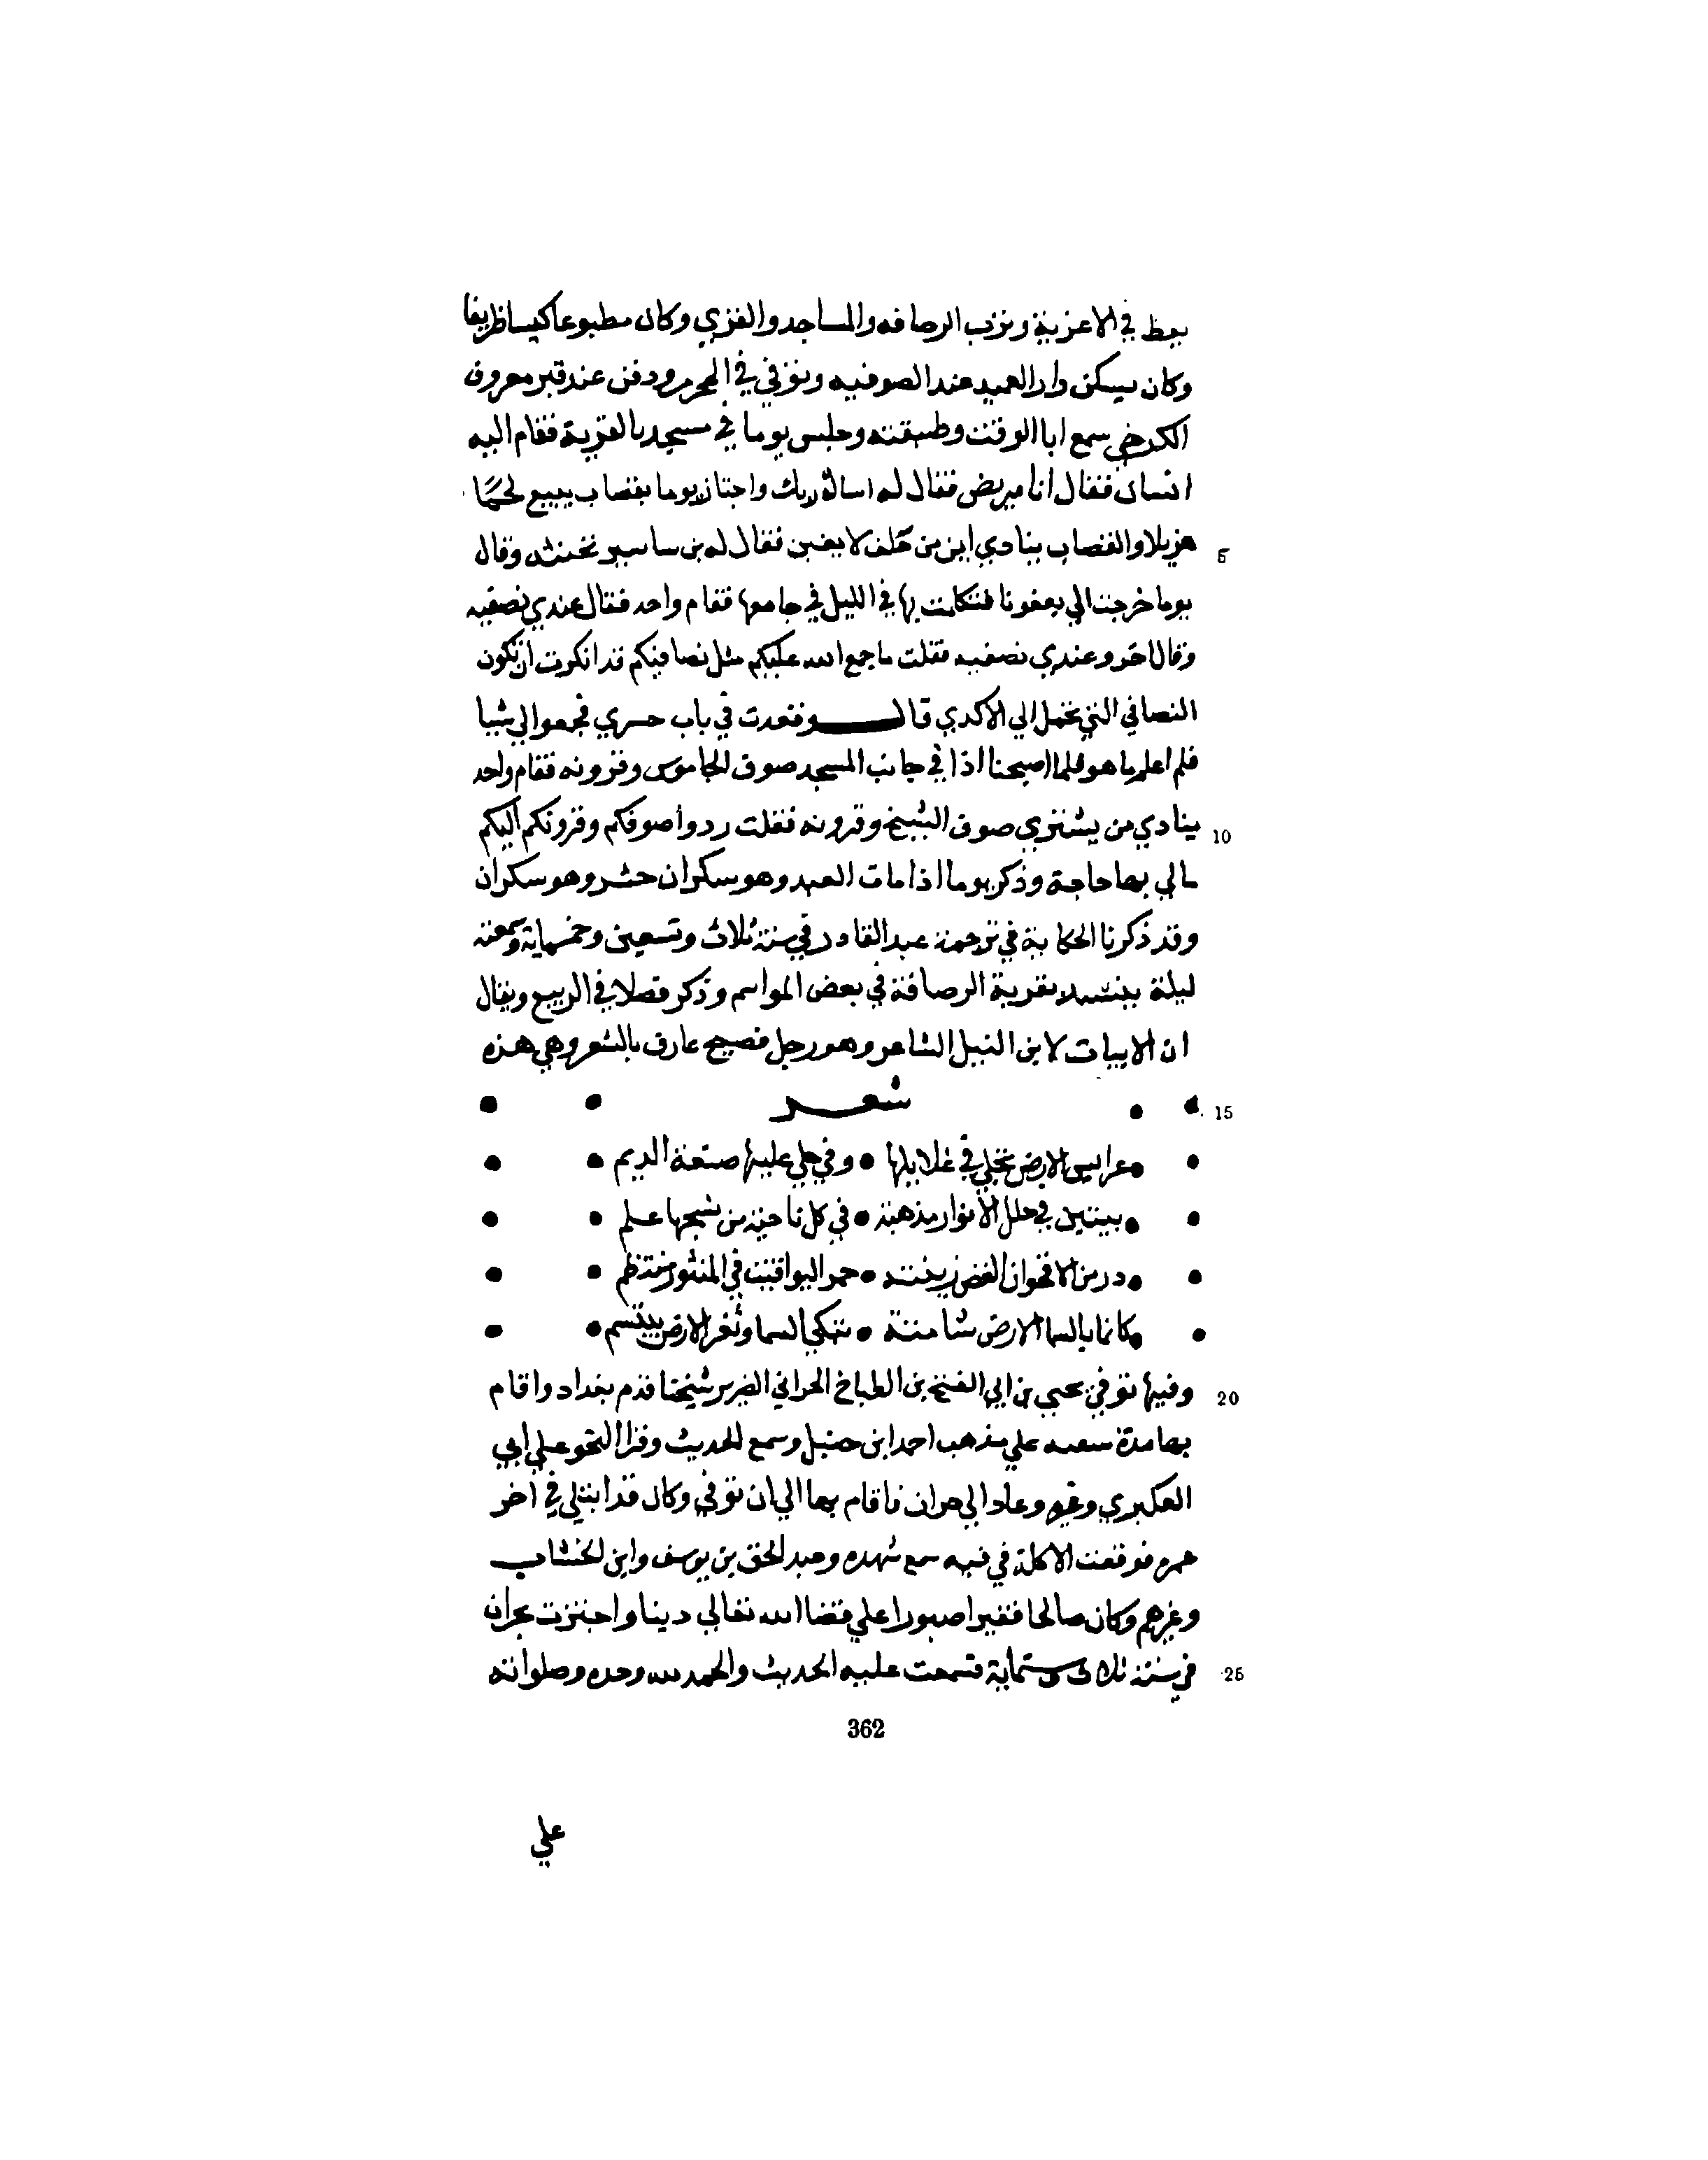 يعظ في الاعزية وترب الرصافه والمساجد والقري وكان مطبوعا كيسا ظريفا
وكان يسكن دار العميد عند الصوفيه وتوفي في المحرم ودفن عند قبر معروف
الكرخي سمع ابا الوقت وطبقته وجلس يوما في مسجد بالقرية فقام اليه
انسان فقال انا مريض فقال له اسالة ربك واجتاز يوما بقصاب يبيع لحمًا
5 هزيلا والقصاب ينادي اين من حَلف لا يغبن فقال له بن ساسير تحنثه وقال
يوما خرجت الي بعقوبا فتكلمت بها في الليل في جامعها فقام واحد فقال عندي نصفيه
وقال اخر وعندي نصفيه فقلت ما جمع الله عليكم مثل نصافيكم قد انكرت ان تكون
النصافي التي تحمل الي الاكدي قال وقعدت في باب حسري فجمعوا لي شيا
فلم اعلم ما هو فلما اصبحنا اذا في جانب المسجد صوف الجاموس وقرونه فقام واحد
10 ينادي من يشتري صوف الشيخ وقرونه فقلت ردوا صوفكم وقرونكم اليكم
مالي بها حاجة وذكر يوما اذا مات العبد وهو سكران حشر وهو سكران
وقد ذكرنا الحكاية في ترجمة عبد القادر في سنة ثلاث وتسعين وخمسماية وسمعته
ليلة ينشد بقرية الرصافة في بعض المواسم وذكر فصلا في الربيع ويقال
ان الابيات لابن النبيل الشاعر وهو رجل فصيح عارف بالشعر وهي هذه
15 شعر
عرايس الارض تجلي في غلايلها • وفي حلي عليها صنعة الديم
يبتين في حلل الانوار مذهبة • في كل ناحية من نسجها علم
در من الاقحوان الغض زينته • حمر اليواقيت في المنثور منتظم
كانما بالسما الارض شامتة • تبكي السما وثغر الارض يبتسم
20 وفيها توفي يحيى بن ابي الفتح بن الطباخ الحراني الضرير شيخنا قدم بغداد واقام
بها مدة سعيه علي مذهب احمد ابن حنبل وسمع الحديث وقرا النحو علي ابي
العكبري وغيره وعاد الي حران فاقام بها الي ان توفي وكان قد ابتلي في اخر
عمره فوقعت الاكلة في فيه سمع شهده وعبد الحق بن يوسف وابن الخشاب
وغيرهم وكان صالحا فقيرا صبورا علي قضا الله تعالي دينا واجتزت بحران
25 في سنة ثلاث وستماية فسمعت عليه الحديث والحمد لله وحده وصلواته
362
علي